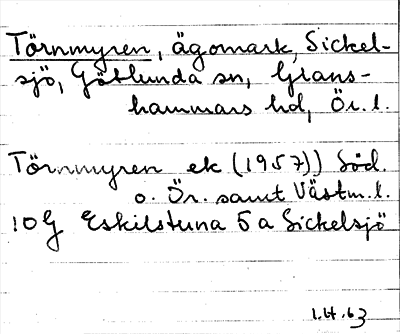 Törnmyren, ägomark, Sickel-
sjö, Götlunda sn, Glans-
hammars hd, Ör. l.
Törnmyren ek (1957)) Söd.
o. Ör. samt Västm. l.
10G Eskilstuna 5a Sickelsjö